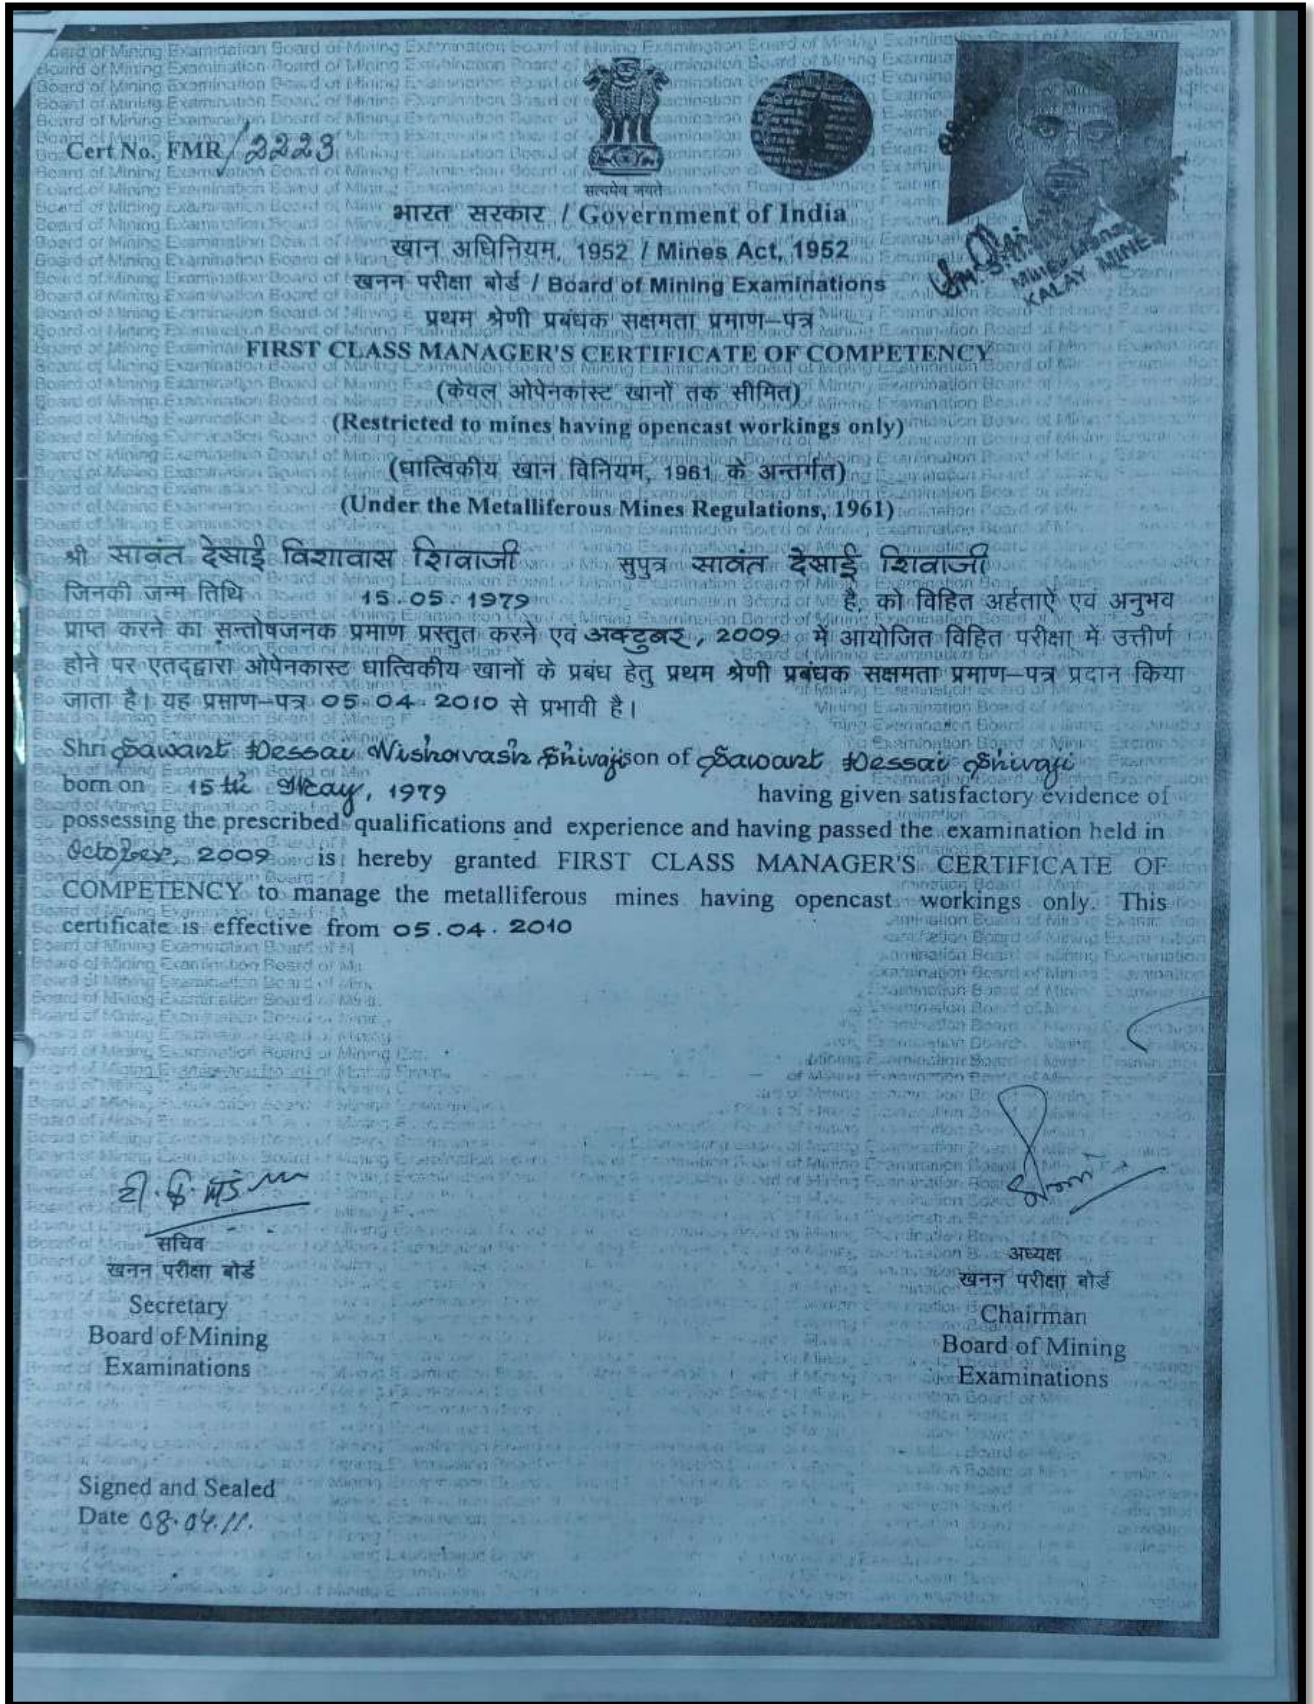 Cert No. FMR/2223
सत्यमेव जयते
भारत सरकार / Government of India
खान अधिनियम, 1952 / Mines Act, 1952
खनन परीक्षा बोर्ड / Board of Mining Examinations
KALAY MINES
प्रथम श्रेणी प्रबंधक सक्षमता प्रमाण–पत्र
FIRST CLASS MANAGER'S CERTIFICATE OF COMPETENCY
(केवल ओपेनकास्ट खानों तक सीमित)
(Restricted to mines having opencast workings only)
(धात्विकीय खान विनियम, 1961 के अन्तर्गत)
(Under the Metalliferous Mines Regulations, 1961)
श्री सावंत देसाई विशावास शिवाजी सुपुत्र सावंत देसाई शिवाजी
जिनकी जन्म तिथि 15.05.1979 है, को विहित अर्हताऐं एवं अनुभव
प्राप्त करने का सन्तोषजनक प्रमाण प्रस्तुत करने एवं अक्टूबर, 2009 में आयोजित विहित परीक्षा में उत्तीर्ण
होने पर एतद्द्वारा ओपेनकास्ट धात्विकीय खानों के प्रबंध हेतु प्रथम श्रेणी प्रबंधक सक्षमता प्रमाण–पत्र प्रदान किया
जाता है। यह प्रमाण–पत्र 05.04.2010 से प्रभावी है।
Shri Sawant Dessai Vishavash Shivaji son of Sawant Dessai Shivaji
born on 15th May, 1979 having given satisfactory evidence of
possessing the prescribed qualifications and experience and having passed the examination held in
October, 2009 is hereby granted FIRST CLASS MANAGER'S CERTIFICATE OF
COMPETENCY to manage the metalliferous mines having opencast workings only. This
certificate is effective from 05.04.2010
सचिव
खनन परीक्षा बोर्ड
Secretary
Board of Mining
Examinations
अध्यक्ष
खनन परीक्षा बोर्ड
Chairman
Board of Mining
Examinations
Signed and Sealed
Date 08.04.11.